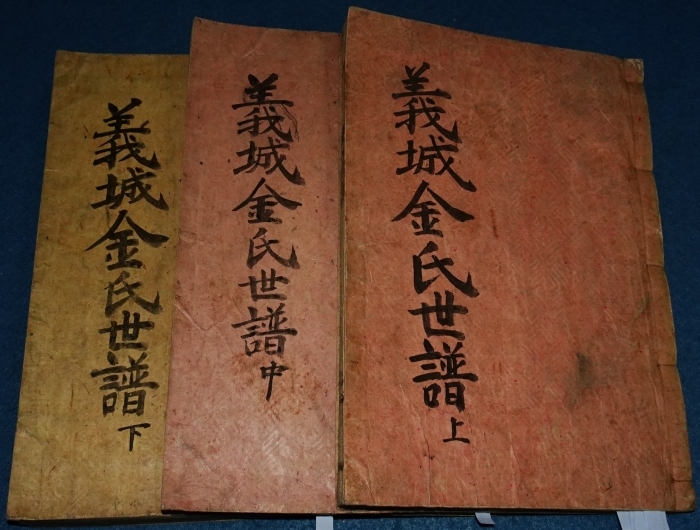 義城金氏世譜上
義城金氏世譜中
義城金氏世譜下